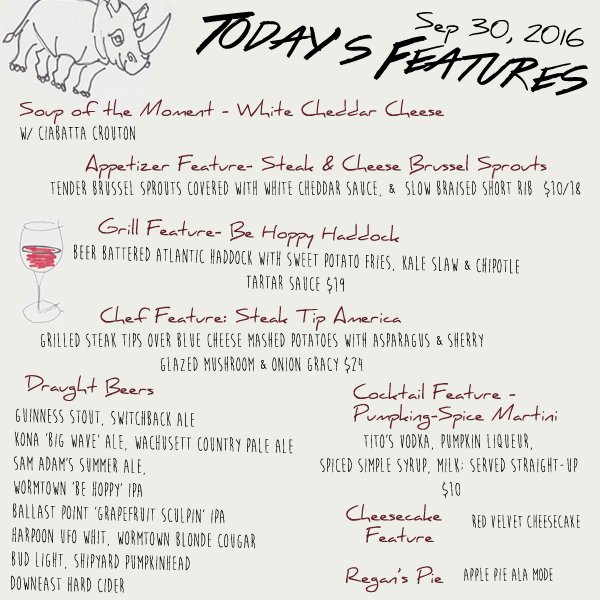 Sep 30, 2016
TODAY'S FEATURES
Soup of the Moment - White Cheddar Cheese
W/ CIABATTA CROUTON
Appetizer Feature- Steak & Cheese Brussel Sprouts
TENDER BRUSSEL SPROUTS COVERED WITH WHITE CHEDDAR SAUCE, & SLOW BRAISED SHORT RIB $10/18
Grill Feature- Be Hoppy Haddock
BEER BATTERED ATLANTIC HADDOCK WITH SWEET POTATO FRIES, KALE SLAW & CHIPOTLE
TARTAR SAUCE $19
Chef Feature: Steak Tip America
GRILLED STEAK TIPS OVER BLUE CHEESE MASHED POTATOES WITH ASPARAGUS & SHERRY
GLAZED MUSHROOM & ONION GRACY $24
Draught Beers
GUINNESS STOUT, SWITCHBACK ALE
KONA 'BIG WAVE' ALE, WACHUSETT COUNTRY PALE ALE
SAM ADAM'S SUMMER ALE,
WORMTOWN 'BE HOPPY' IPA
BALLAST POINT 'GRAPEFRUIT SCULPIN' IPA
HARPOON UFO WHIT, WORMTOWN BLONDE COUGAR
BUD LIGHT, SHIPYARD PUMPKINHEAD
DOWNEAST HARD CIDER
Cocktail Feature -
Pumpking-Spice Martini
TITO'S VODKA, PUMPKIN LIQUEUR,
SPICED SIMPLE SYRUP, MILK; SERVED STRAIGHT-UP
$10
Cheesecake
Feature
RED VELVET CHEESECAKE
Regan's Pie
APPLE PIE ALA MODE